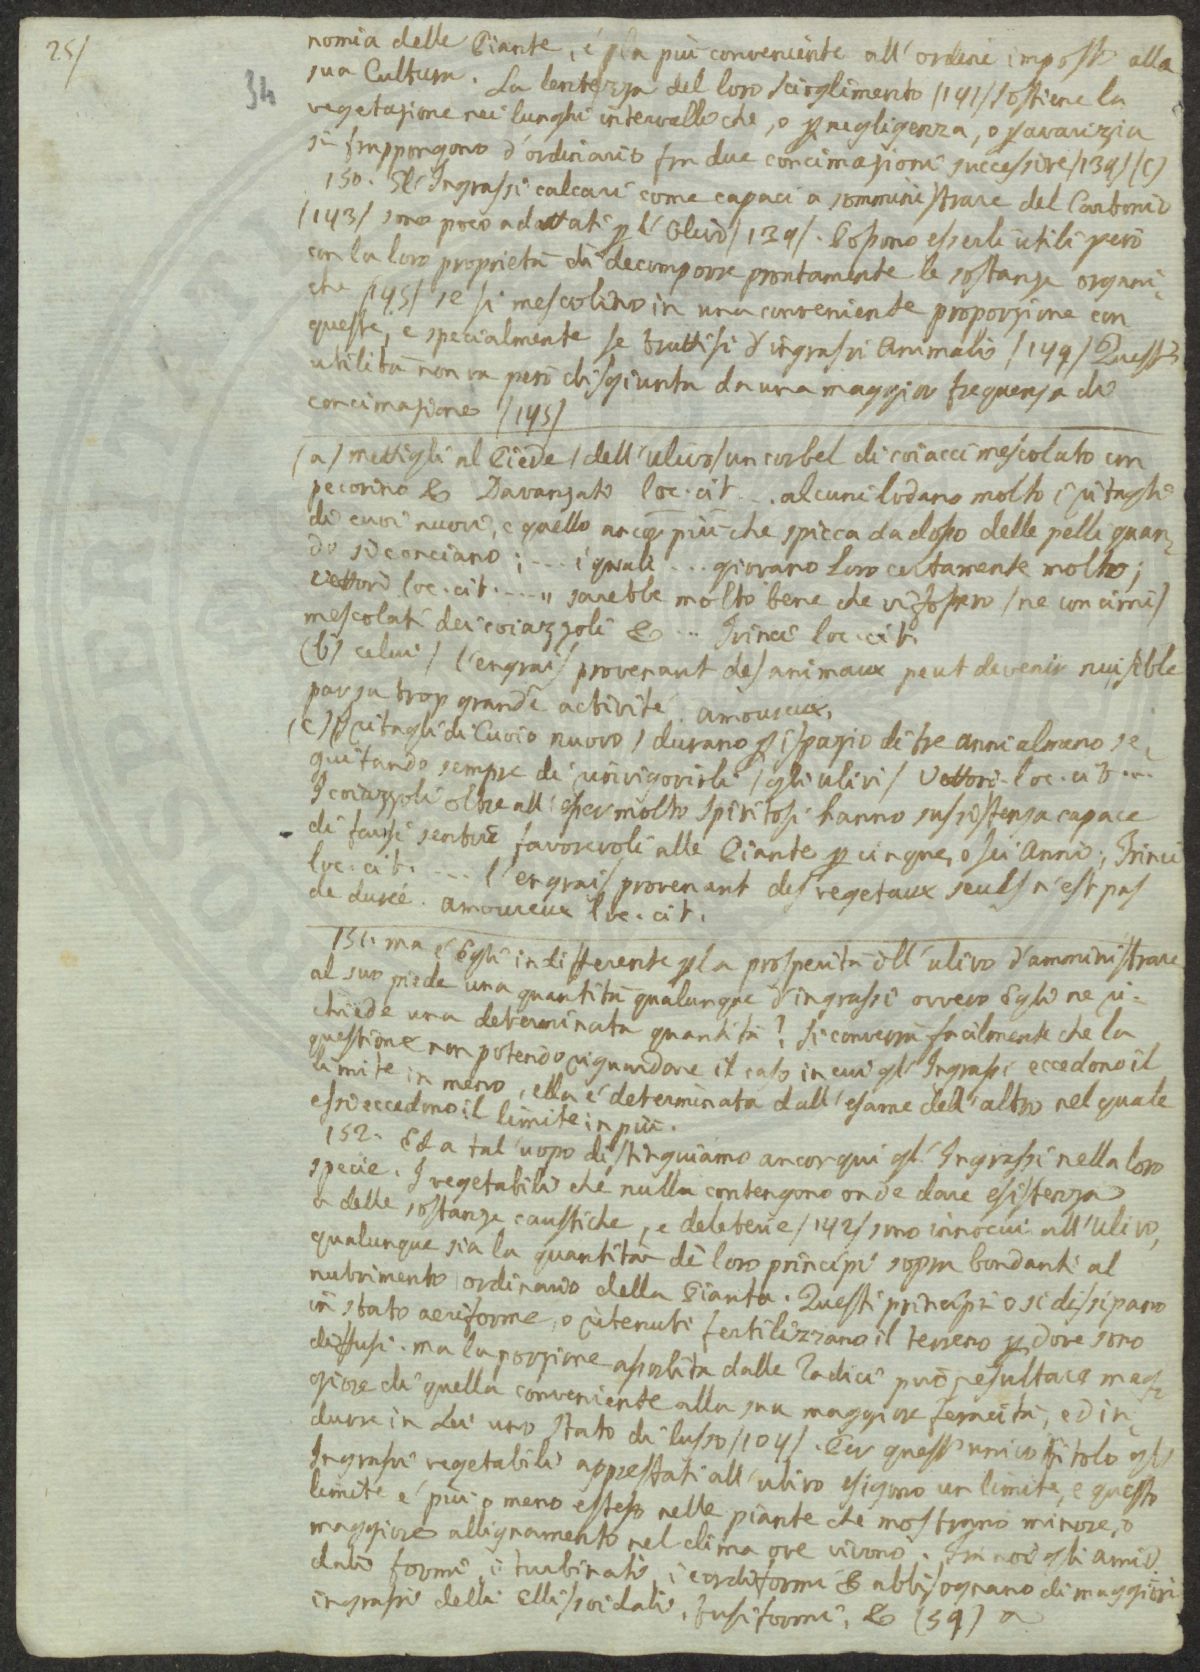 25/
34
nomia delle Piante, é pla più conveniente all'ordine imposto alla
sua Cultura. La lentezza del loro scioglimento /141/ sostiene la
vegetazione nei lunghi intervalli che, o p negligenza, o p avarizia
si frappongono d'ordinario fra due concimazioni successive /139/ (c)
150. Gl'Ingrassi calcari come capaci a somministrare del Carbonio
/143/ sono poco adattati p l'Olivo /139/. Possono esserli utili però
con la loro proprietà di decomporre prontamente le sostanze organi,
che /145/ se si mescolino in una conveniente proporzione con
queste, e specialmente se trattisi d'ingrassi Animali /149/ Questa
utilità non va però disgiunta da una maggior frequenza di
concimazione /145/
(a) mettigli al Piede /dell'ulivo/ un corbel di coiacci mescolato con
pecorino &. Davanzati loc. cit. ... alcuni lodano molto i ritagli
di cuoi nuovi, e quello ancor più che spicca da dosso delle pelli quan,
do si conciano; ... i quali ... giovano loro certamente molto;
Vettori loc. cit. .... " sarebbe molto bene che vi fossero /ne concimi/
mescolati dei coiazzoli & ... Trinci loc. cit.
(b) celui / l'engrais / provenant des animaux peut devenir nuisible
par sa trop grande activité. amoureux,
(c) I ritagli di Cuoio nuovo / durano p ispazio di tre anni almeno se,
guitando sempre di rinvigorirli /gli ulivi/ Vettori. loc. cit. ...
I coiazzoli oltre all'esser molto spiritosi hanno sussistenza capace
di farsi sentire favorevoli alle Piante p cinque, o sei Anni; Trinci
loc. cit. .... l'engrais provenant des vegetaux seuls n'est pas
de durée. amoureux loc. cit.
151. ma é Egli indifferente pla prosperità dll'ulivo d'amministrare
al suo piede una quantità qualunque d'ingrassi ovvero Egli ne ri-
chiede una determinata quantità? Si converrà facilmente che la
questione non potendo riguardare il caso in cui gl'Ingrassi eccedono il
limite in meno, ella é determinata dall'esame dell'altro nel quale
essi eccedono il limite in più.
152. Ed a tal'uopo distinguiamo ancor qui gl'Ingrassi nella loro
specie. I vegetabili che nulla contengono onde dare esistenza
a delle sostanze caustiche, e deleterie /142/ sono innocui all'ulivo,
qualunque sia la quantità de loro principi soprabbondanti al
nutrimento ordinario della Pianta. Questi principi o si dissipano
in stato aeriforme, o ritenuti fertilizzano il terreno p dove sono
diffusi. ma la porzione assorbita dalle Radici può resultare mag,
giore di quella conveniente alla sua maggiore feracità, ed in,
durre in Lui uno stato di lusso /104/. Per quest'unico titolo gli
Ingrassi vegetabili apprestati all'ulivo esigono un limite, e questo
limite é più o meno esteso nelle piante che mostrano minore, o
maggiore allignamento nel clima ove vivono. Fra noi gli amig
dali formi, i turbinati, i cordiformi & abbisognano di maggiori
ingrassi delli Ellissoidali, fusiformi, & (59) a